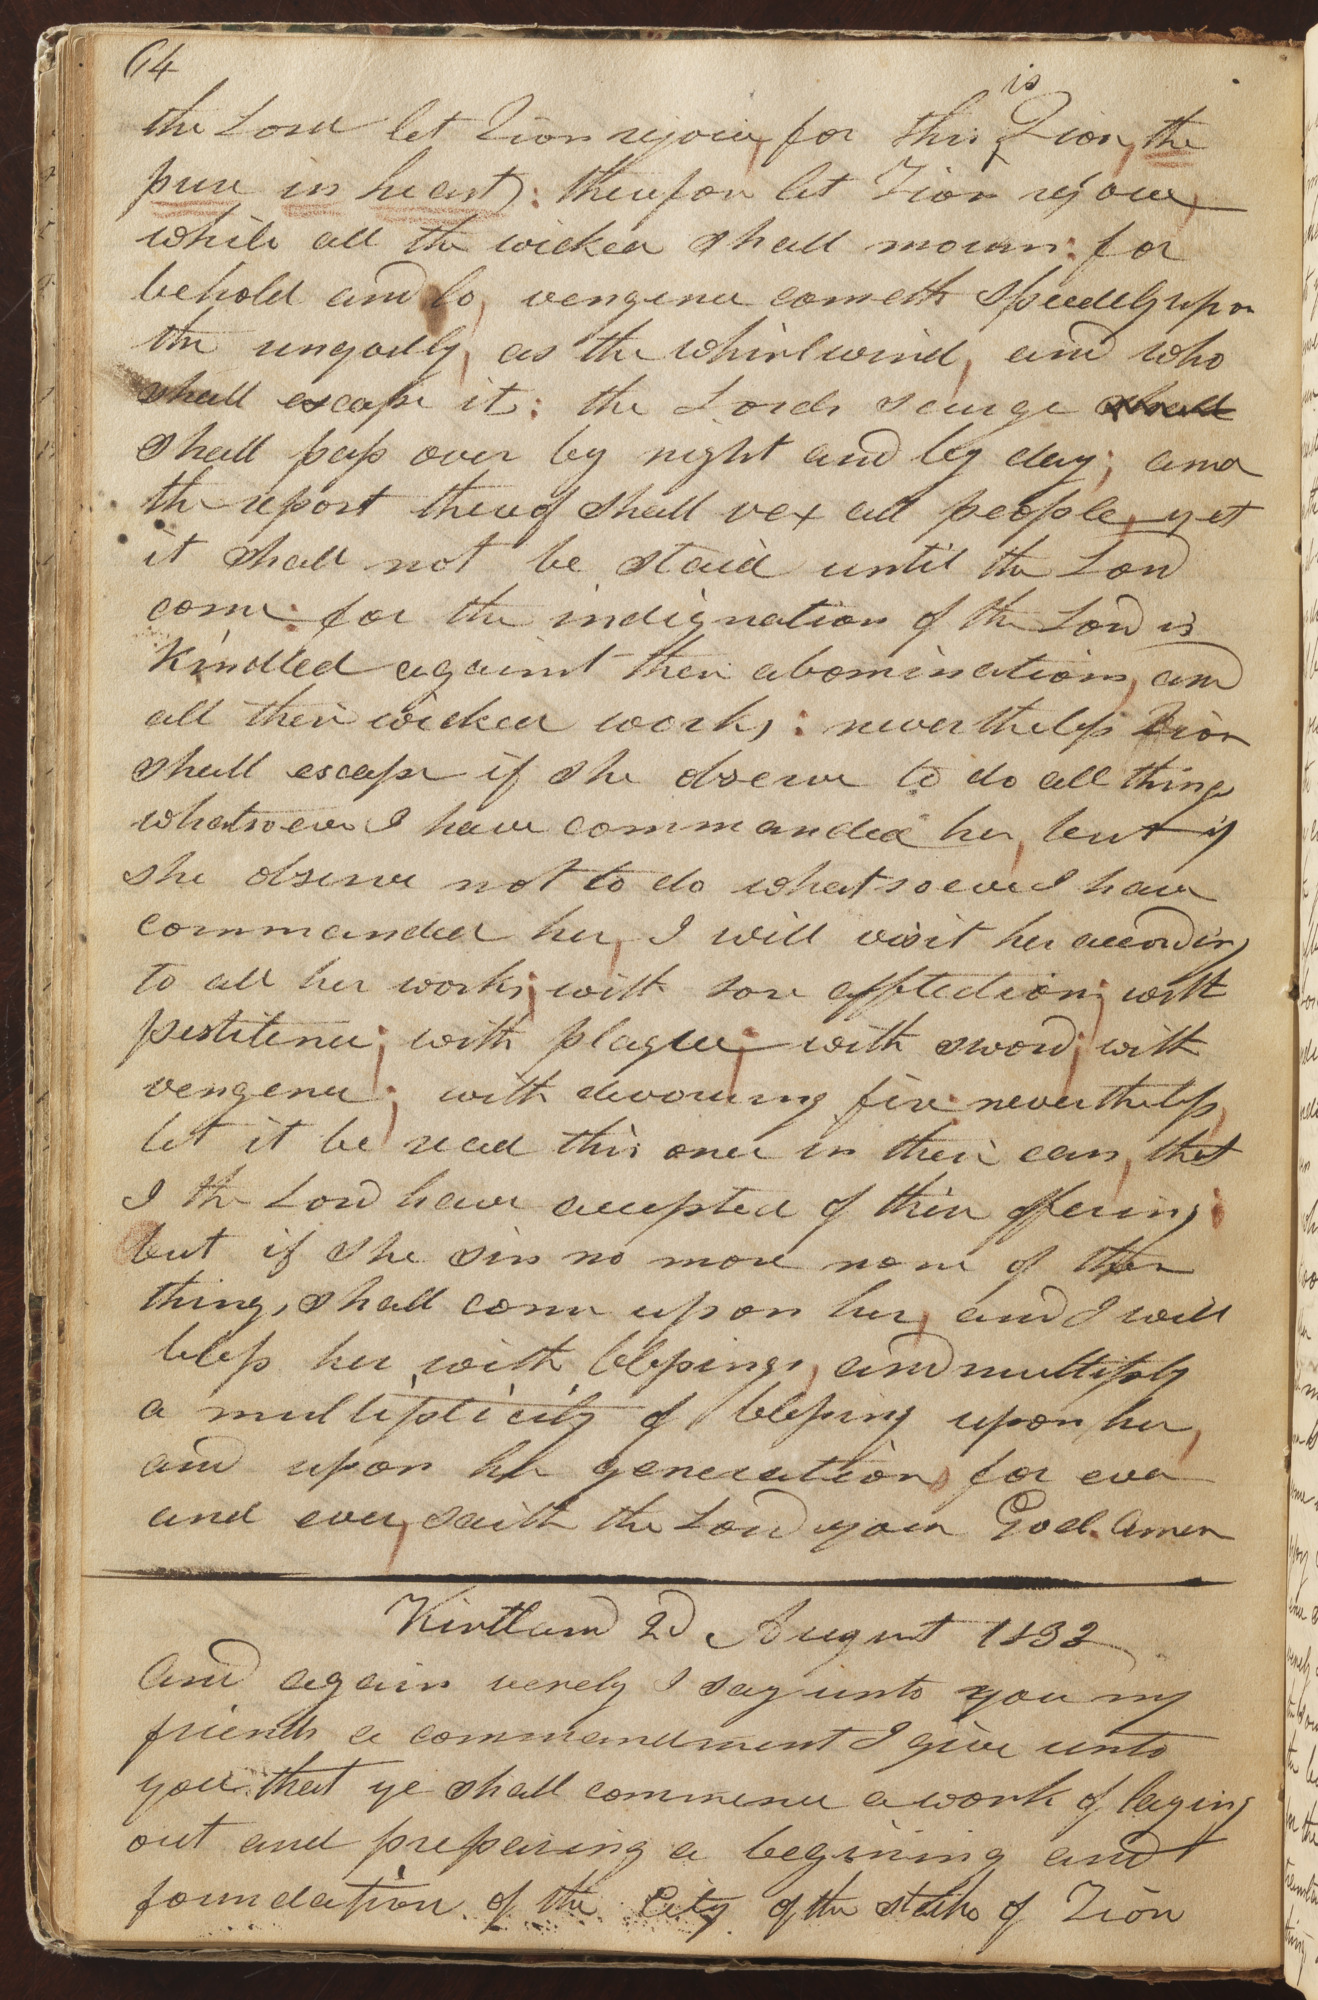 64
the Lord let Zion rejoice, for this is Zion, the
pure in heart): therefore let Zion rejoice,
while all the wicked shall mourn: for
behold and lo, vengence cometh speedely upon
the ungodly, as the whirlwind, and who
shall escape it: the Lords scurge shall
shall pass over by night and by day; and
the report thereof shall vex all people, yet
it shall not be staid until the Lord
come: for the indignation of the Lord is
Kindled against their abominations, and
all their wicked works: nevertheless Zion
shall escape if she observe to do all things
whatsoever I have commanded her, but if
she observe not to do whatsoever I have
commanded her, I will visit her according
to all her works; with sore afflection; with
pestilence; with plague; with sword; with
vengence; with devouring fire: nevertheless,
let it be read this once in their ears, that
I the Lord have accepted of their offering:
but if she sin no more none of these
things, shall come upon her, and I will
bless her with blessings, and multiply
a multiplicity of blessings upon her,
and upon her generations for ever
and ever, saith the Lord your God. Amen
Kirtland 2d August 1833
And again verely I say unto you my
friends a commandment I give unto
you that ye shall commence a work of laying
out and prepairing a begining and
foundation of the City of the stake of Zion